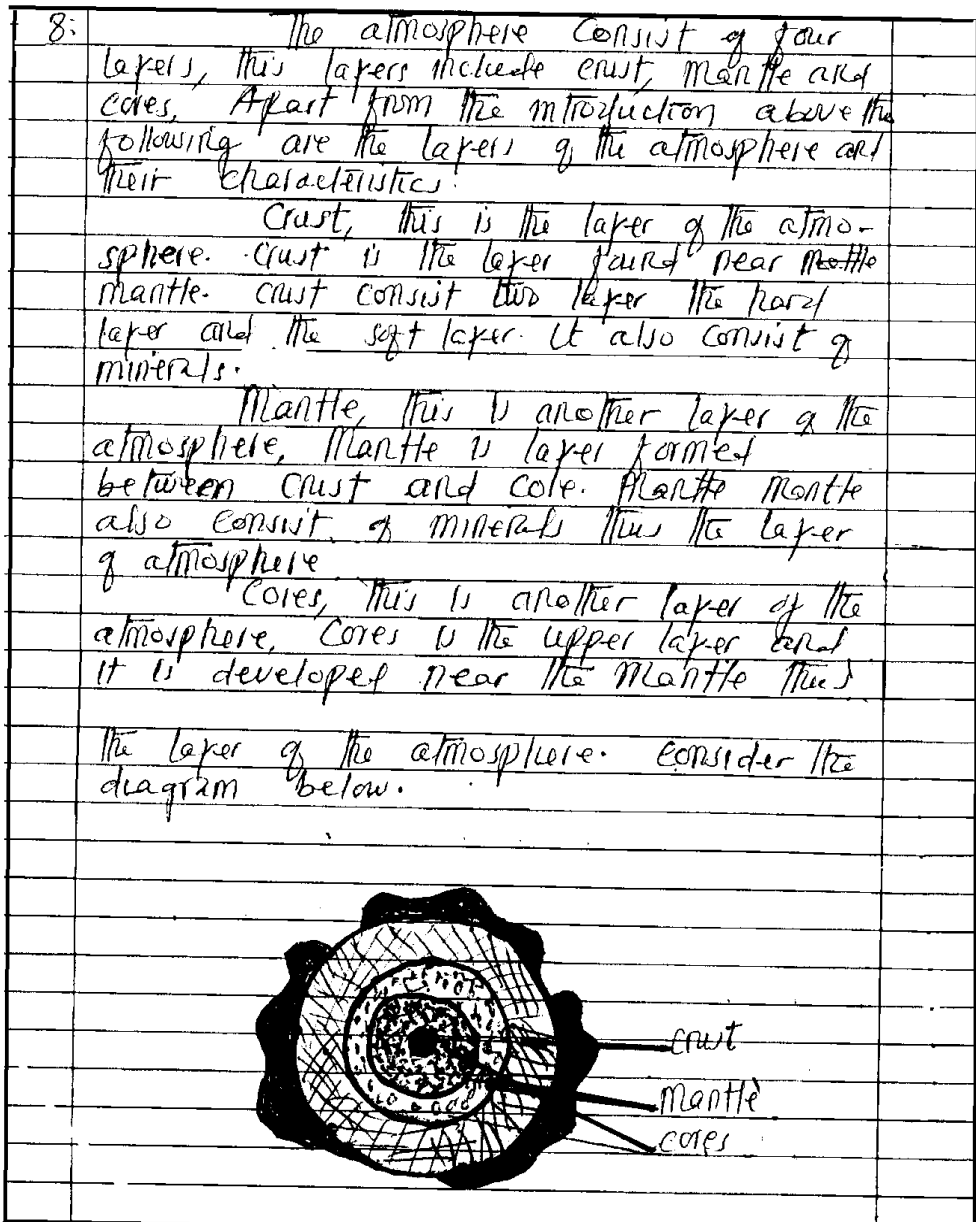 8: The atmosphere Consist of four
layers, this layers include crust, mantle and
cores, Apart from the introduction above the
following are the layers of the atmosphere and
their characteristics.
Crust, this is the layer of the atmo-
sphere. Crust is the layer found near
mantle. Crust consist two layer the hard
layer and the soft layer. It also consist of
minerals.
Mantle, this is another layer of the
atmosphere, Mantle is layer formed
between crust and core. Mantle Mantle
also consist of minerals thus the layer
of atmosphere
Cores, this is another layer of the
atmosphere, Cores is the upper layer and
it is developed near the mantle thus
the layer of the atmosphere. Consider the
diagram below.
crust
Mantle
cores